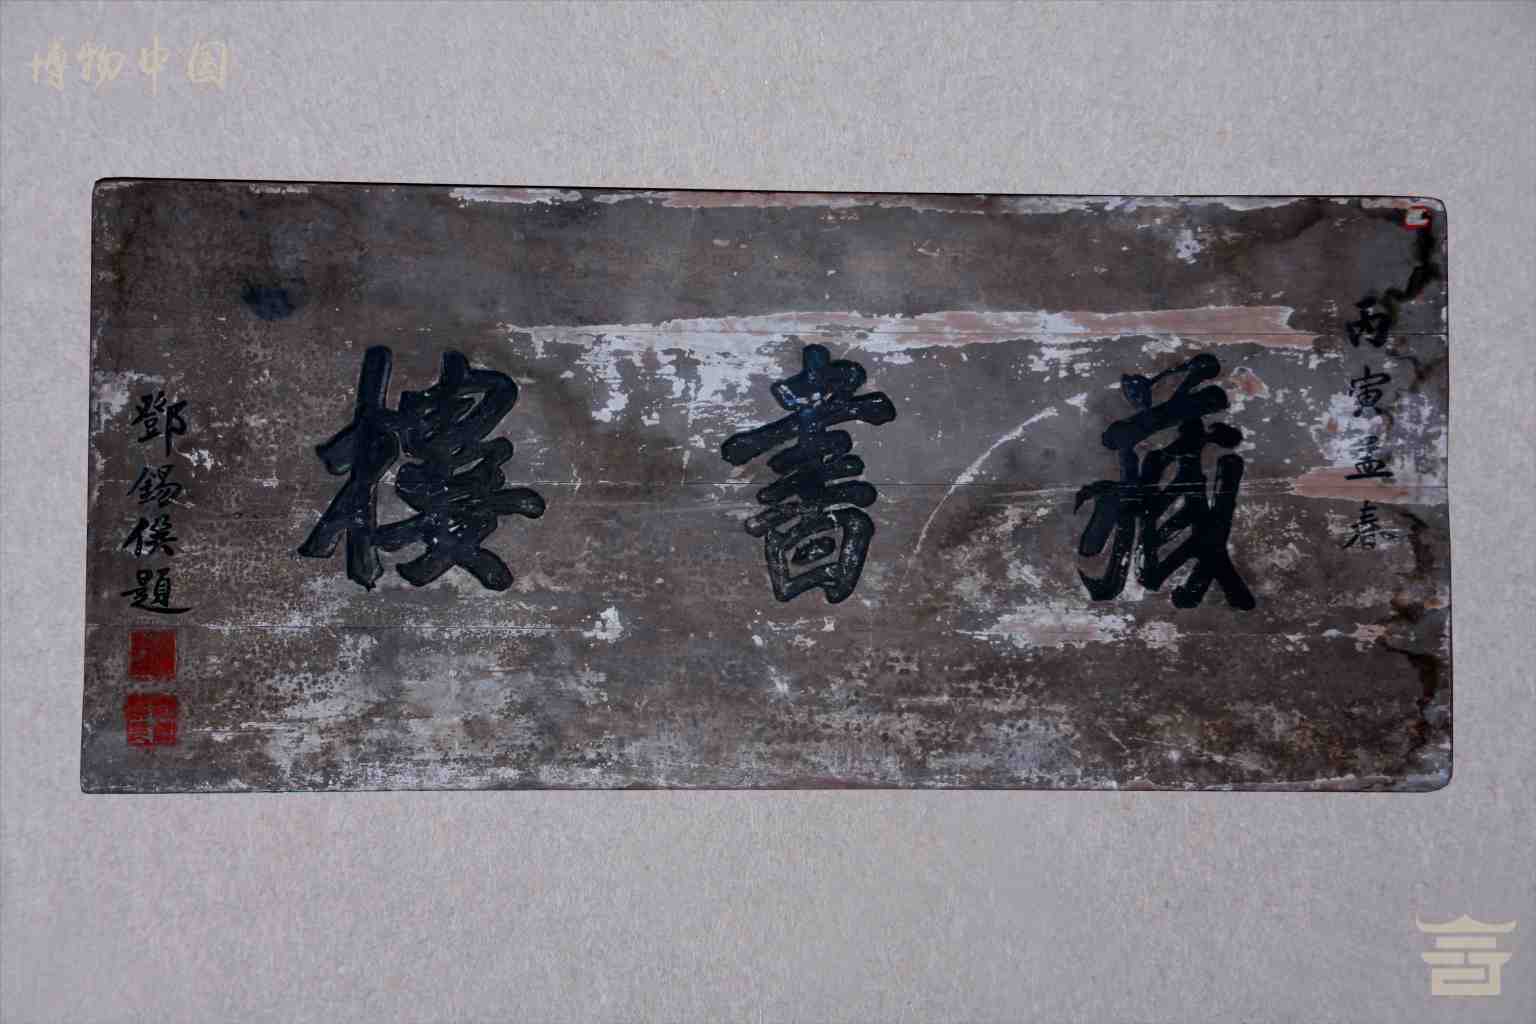 博物中国
丙寅孟春
藏書樓
鄧錫侯題